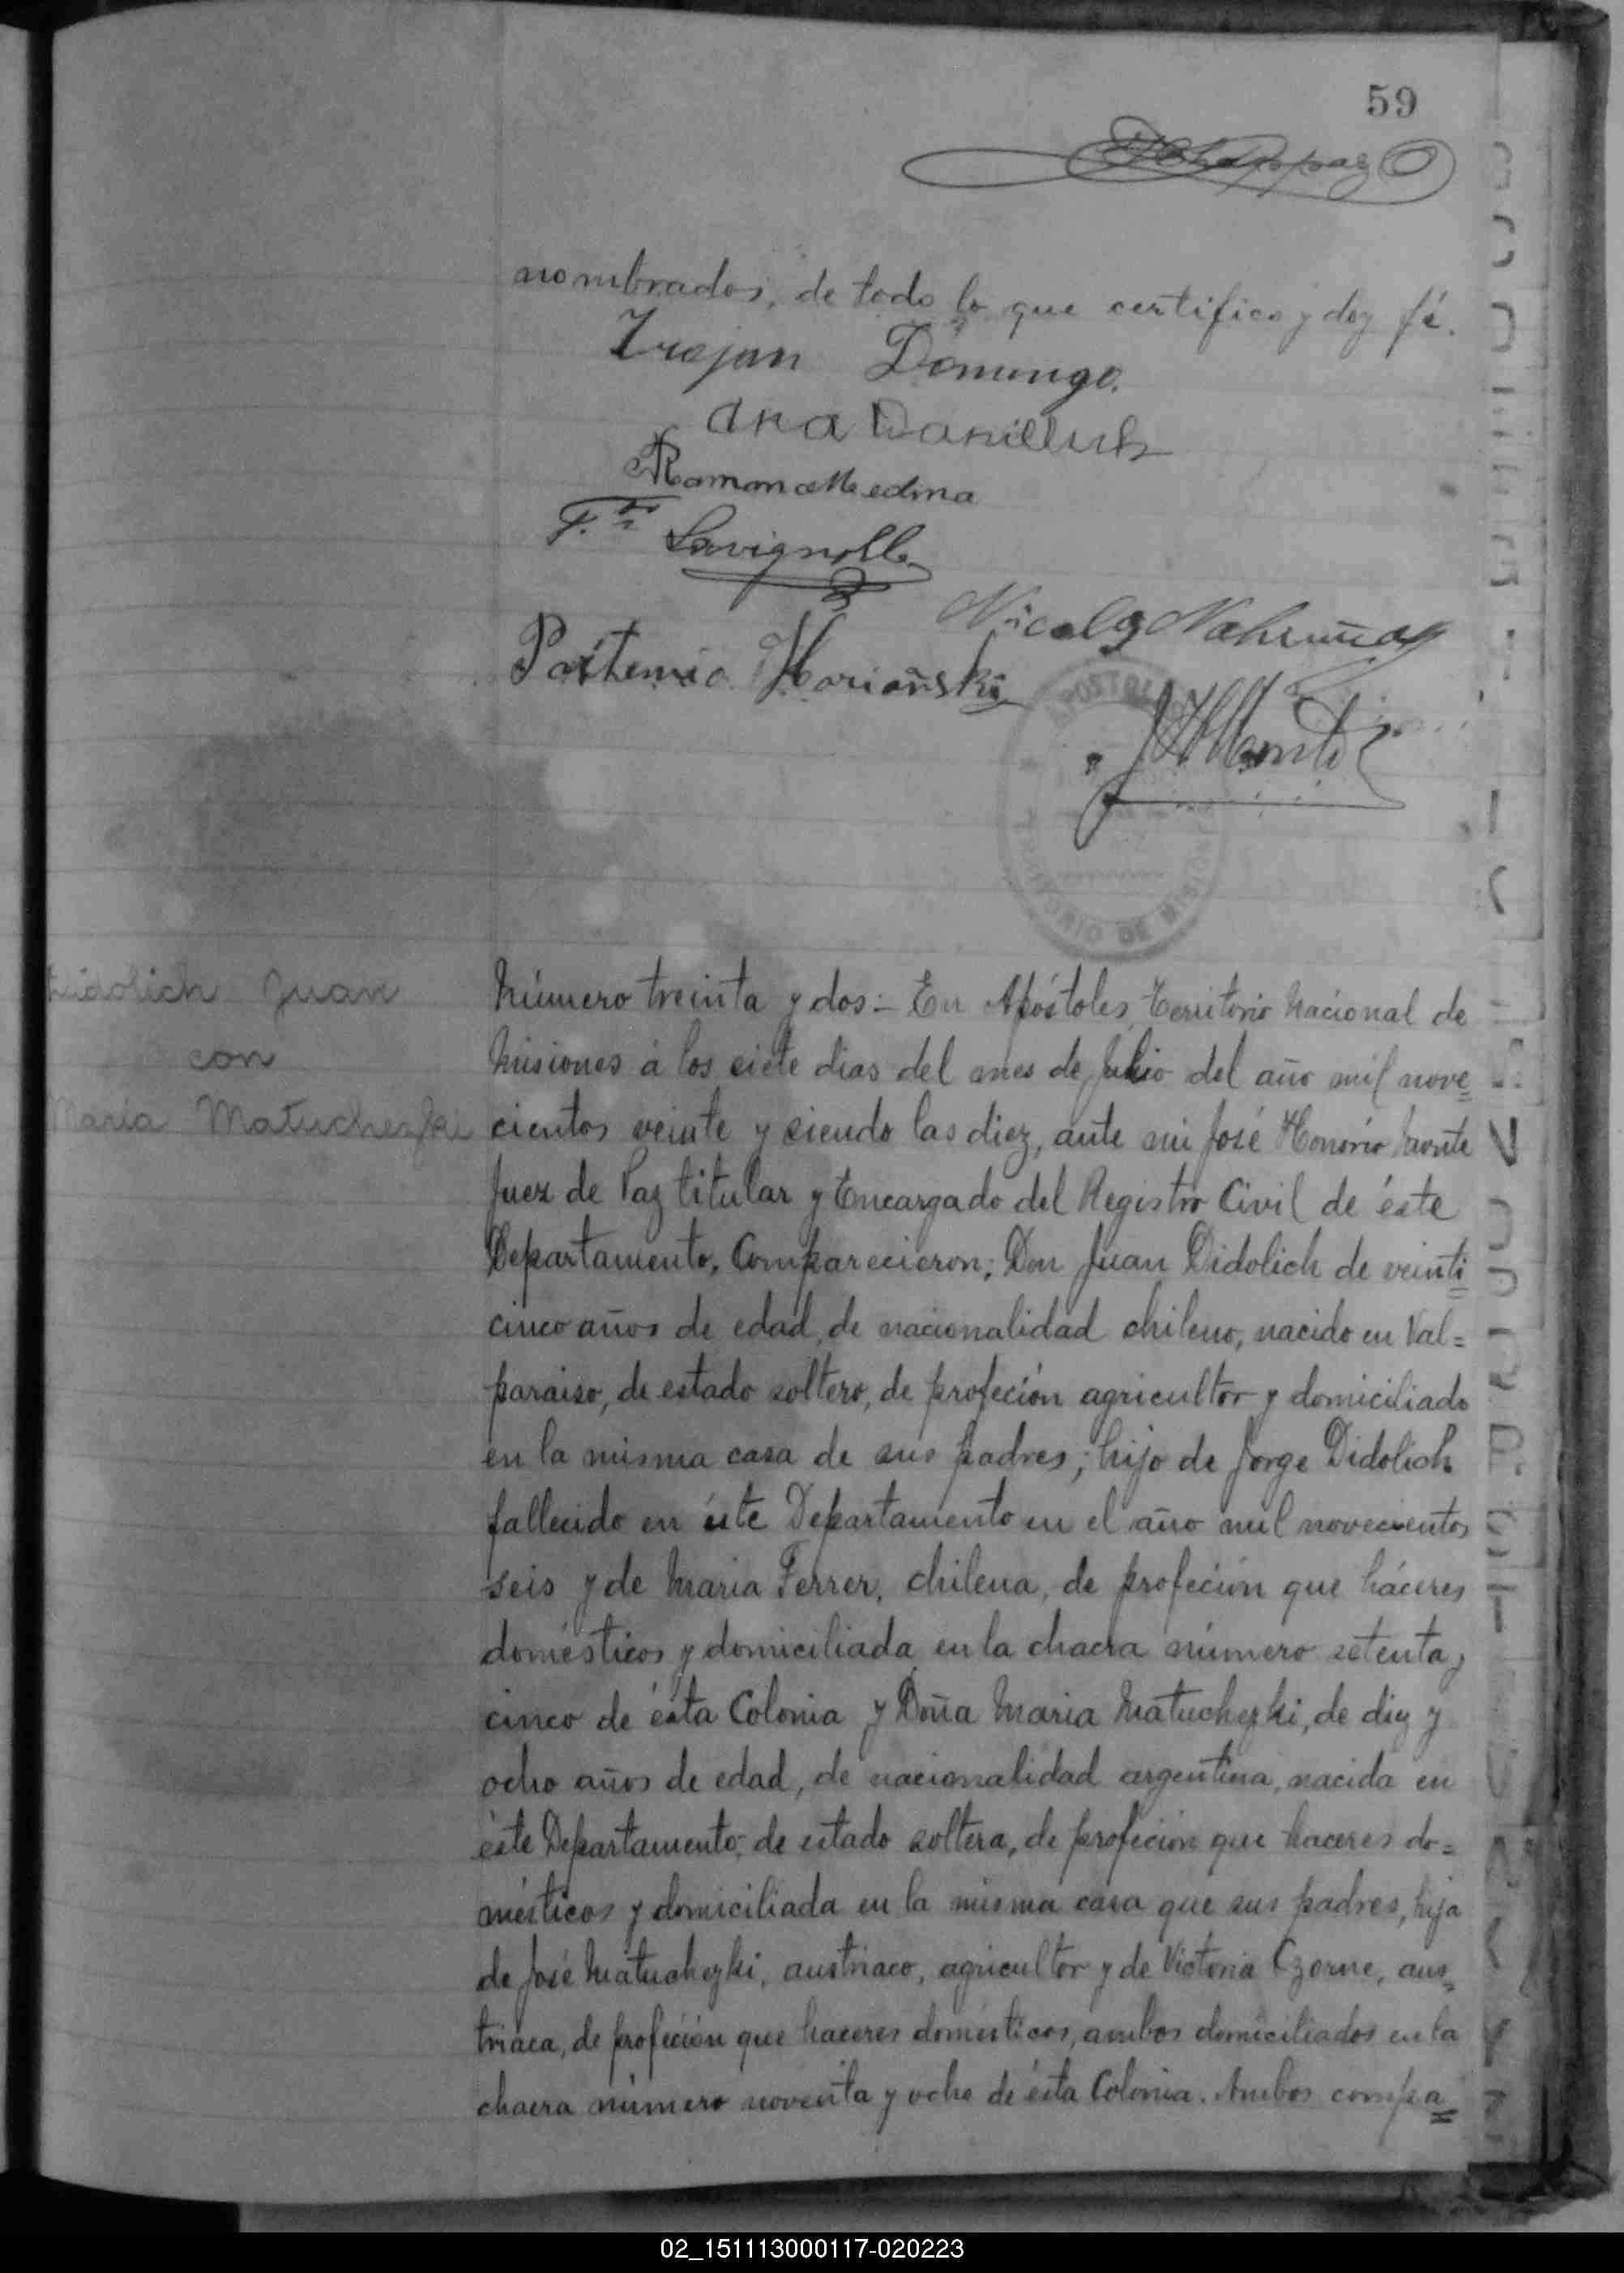 59
nombrados, de todo lo que certifico y doy fé.
Trojan Domingo.
Ana Danilluk
Ramon Medina
F.to Lavignolle
Nicolas Nahirñay
Partemio Horiañski
APOSTOLES
TERRITORIO DE MISIONES
Didolich Juan
con
Maria Matuchezki
Número treinta y dos:- En Apóstoles, Territorio Nacional de
Misiones á los siete dias del mes de Julio del año mil nove=
cientos veinte y siendo las diez, ante mi José Honorio Monte
Juez de Paz titular y Encargado del Registro Civil de éste
Departamento, Comparecieron; Don Juan Didolich de veinti=
cinco años de edad, de nacionalidad chileno, nacido en Val=
paraiso, de estado soltero, de profeción agricultor y domiciliado
en la misma casa de sus padres; hijo de Jorge Didolich
fallecido en éste Departamento en el año mil novecientos
seis y de Maria Ferrer, chilena, de profeción que háceres
domésticos y domiciliada en la chacra número setenta y
cinco de ésta Colonia y Doña Maria Matuchezki, de diez y
ocho años de edad, de nacionalidad argentina, nacida en
éste Departamento, de estado soltera, de profeción que haceres do=
mésticos y domiciliada en la misma casa que sus padres, hija
de José Matuchezki, austriaco, agricultor y de Victoria Czorne, aus=
triaca, de profeción que haceres domésticos, ambos domiciliados en la
chacra número noventa y ocho de ésta Colonia. Ambos compa=
02_151113000117-020223